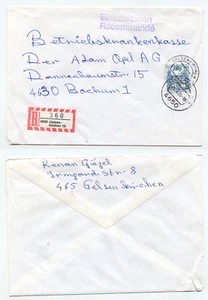 Einschreiben
Recommandé
Betriebskrankenkasse
Der Adam Opel AG
Dannenbaumstr 15
4630 Bochum 1
R
360
4650 Gelsen-
kirchen
Kenan Güzel
Irmgard Str - 8
465 Gelsenkirchen